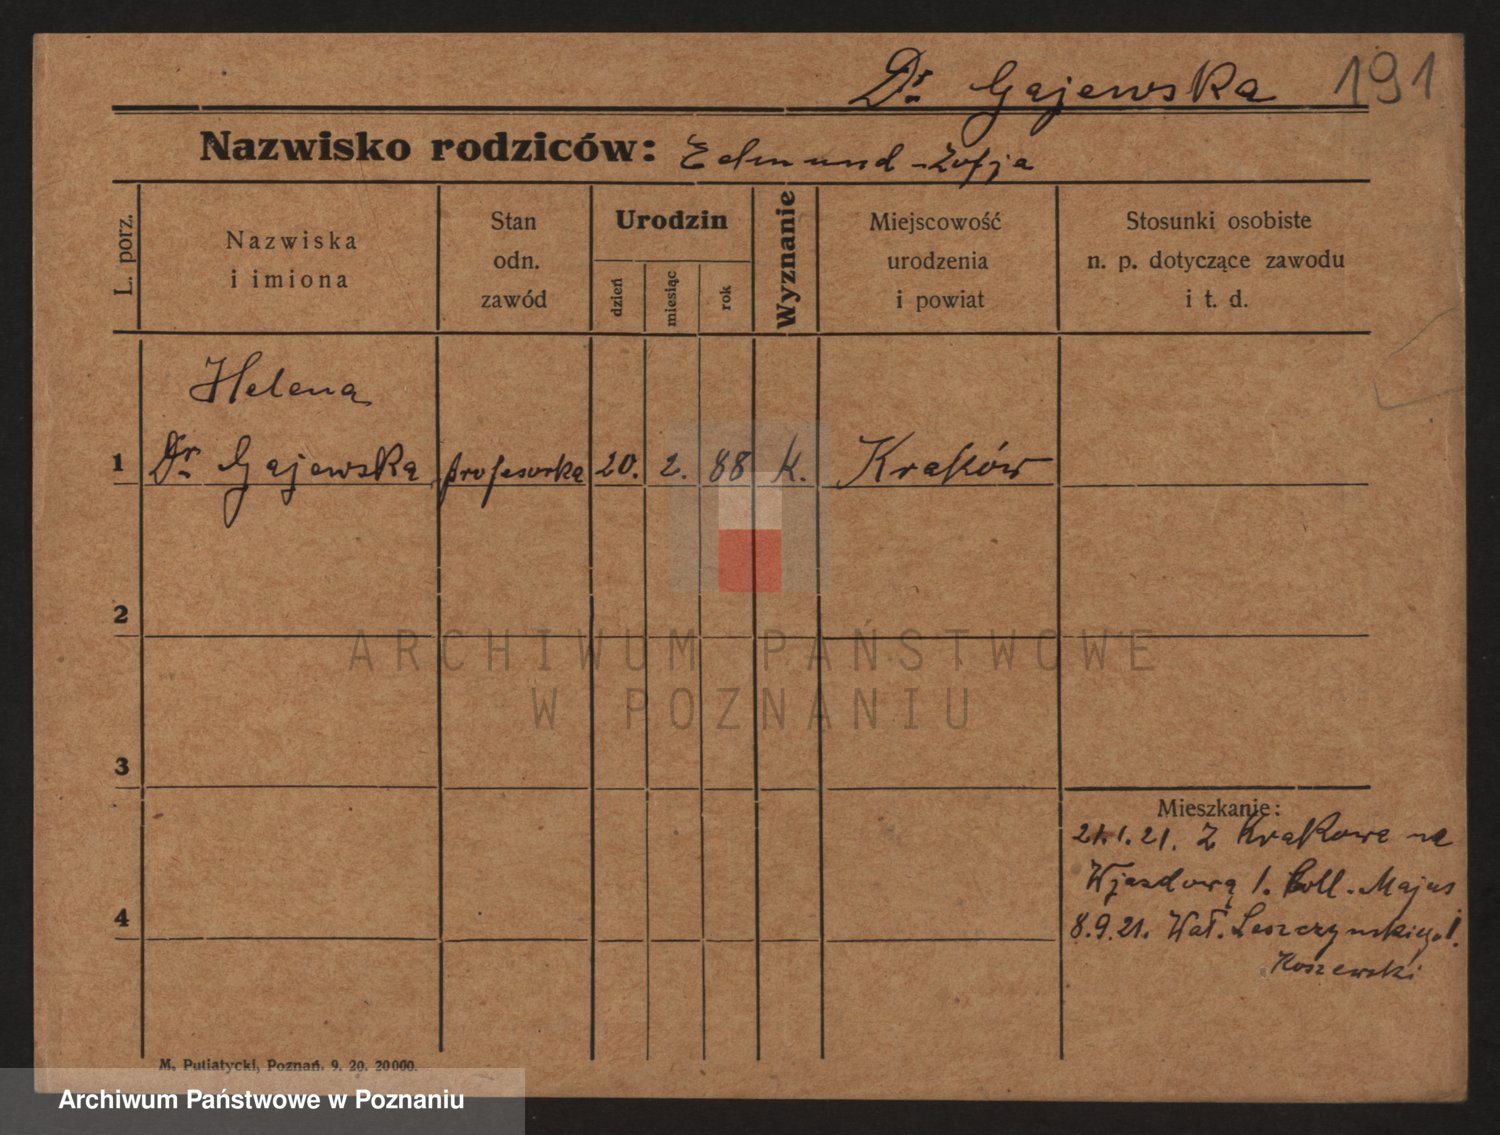 Dr. Gajewska 191
Nazwisko rodziców: Edmund - Zofja
L. porz.
Nazwiska
i imiona
Stan
odn.
zawód
Urodzin
dzień
miesiąc
rok
Wyznanie
Miejscowość
urodzenia
i powiat
Stosunki osobiste
n. p. dotyczące zawodu
i t. d.
Helena
1 Dr. Gajewska profesorka 20. 2. 88 k. Kraków
2
ARCHIWUM PAŃSTWOWE
W POZNANIU
3
Mieszkanie:
21.1.21. Z Krakowa na
Wjazdową 1. Coll. Majus
4
8.9.21. Wał. Leszczyńskiego 1.
Koszewski
M. Putiatycki, Poznań. 9. 20. 20000.
Archiwum Państwowe w Poznaniu